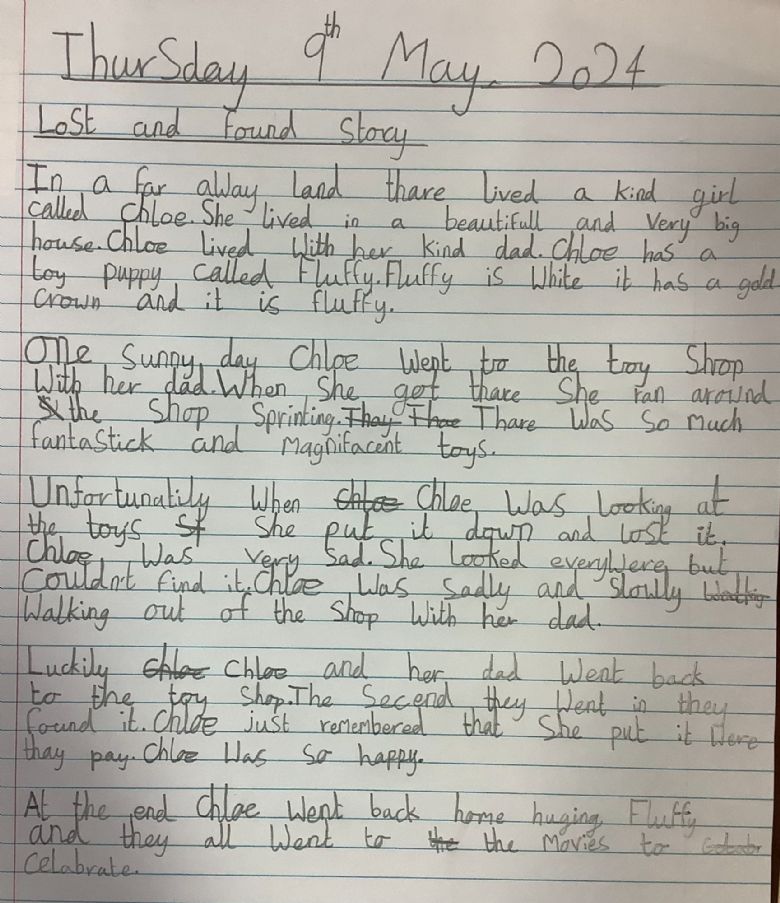 Thursday 9th May. 2024
Lost and found Story
In a far away land thare lived a kind girl
called Chloe. She lived in a beautifull and very big
house. Chloe lived with her kind dad. Chloe has a
toy puppy called Fluffy. Fluffy is white it has a gold
crown and it is fluffy.
One sunny day Chloe went to the toy shop
with her dad. When she got thare she ran around
the shop sprinting. Thay Thae Thare was so much
fantastick and magnifacent toys.
Unfortunatily when Chloe Chloe was looking at
the toys st she put it down and lost it.
Chloe was very sad. She looked everywere but
couldn't find it. Chloe was sadly and slowly walkig
walking out of the shop with her dad.
Luckily Chloe Chloe and her dad went back
to the toy shop. The second they went in they
found it. Chloe just remembered that she put it were
thay pay. Chloe was so happy.
At the end Chloe went back home huging Fluffy
and they all went to the the movies to
celabrate.